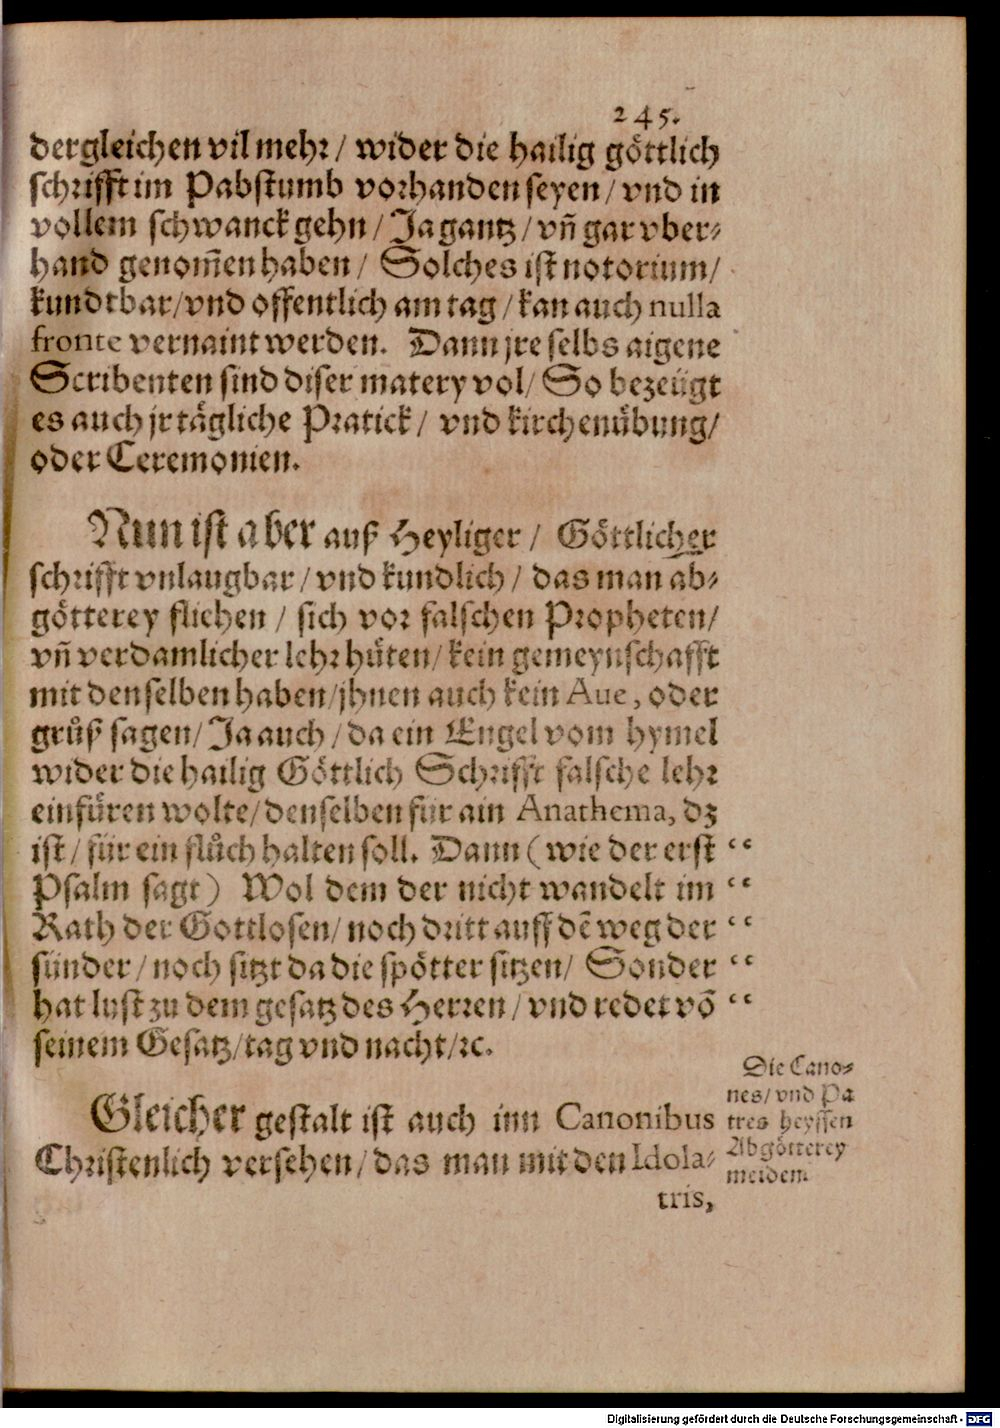 245.
dergleichen vil mehr / wider die hailig göttlich
schrifft im Pabstumb vorhanden seyen / vnd in
vollem schwanck gehn / Ja gantz / vñ gar vber⸗
hand genom̃en haben / Solches ist notorium /
kundtbar / vnd offentlich am tag / kan auch nulla
fronte vernaint werden. Dann jre selbs aigene
Scribenten sind diser matery vol / So bezeügt
es auch jr tägliche Pratick / vnd kirchenübung /
oder Ceremonien.
Nun ist aber auß Heyliger / Göttlicher
schrifft vnlaugbar / vnd kundlich / das man ab⸗
götterey fliehen / sich vor falschen Propheten /
vñ verdamlicher lehr hüten / kein gemeynschafft
mit denselben haben / jhnen auch kein Aue, oder
grůß sagen / Ja auch / da ein Engel vom hymel
wider die hailig Göttlich Schrifft falsche lehr
einfüren wolte / denselben für ain Anathema, dz
ist / für ein flůch halten soll. Dann ( wie der erst “
Psalm sagt ) Wol dem der nicht wandelt im “
Rath der Gottlosen / noch dritt auff dẽ weg der “
sünder / noch sitzt da die spötter sitzen / Sonder “
hat lust zu dem gesatz des Herren / vnd redet võ “
seinem Gesatz / tag vnd nacht / ꝛc.
Gleicher gestalt ist auch inn Canonibus
Christenlich versehen / das man mit den Idola⸗
tris,
Die Cano⸗
nes / vnd Pa
tres heyssen
Abgötterey
meiden.
Digitalisierung gefördert durch die Deutsche Forschungsgemeinschaft - DFG